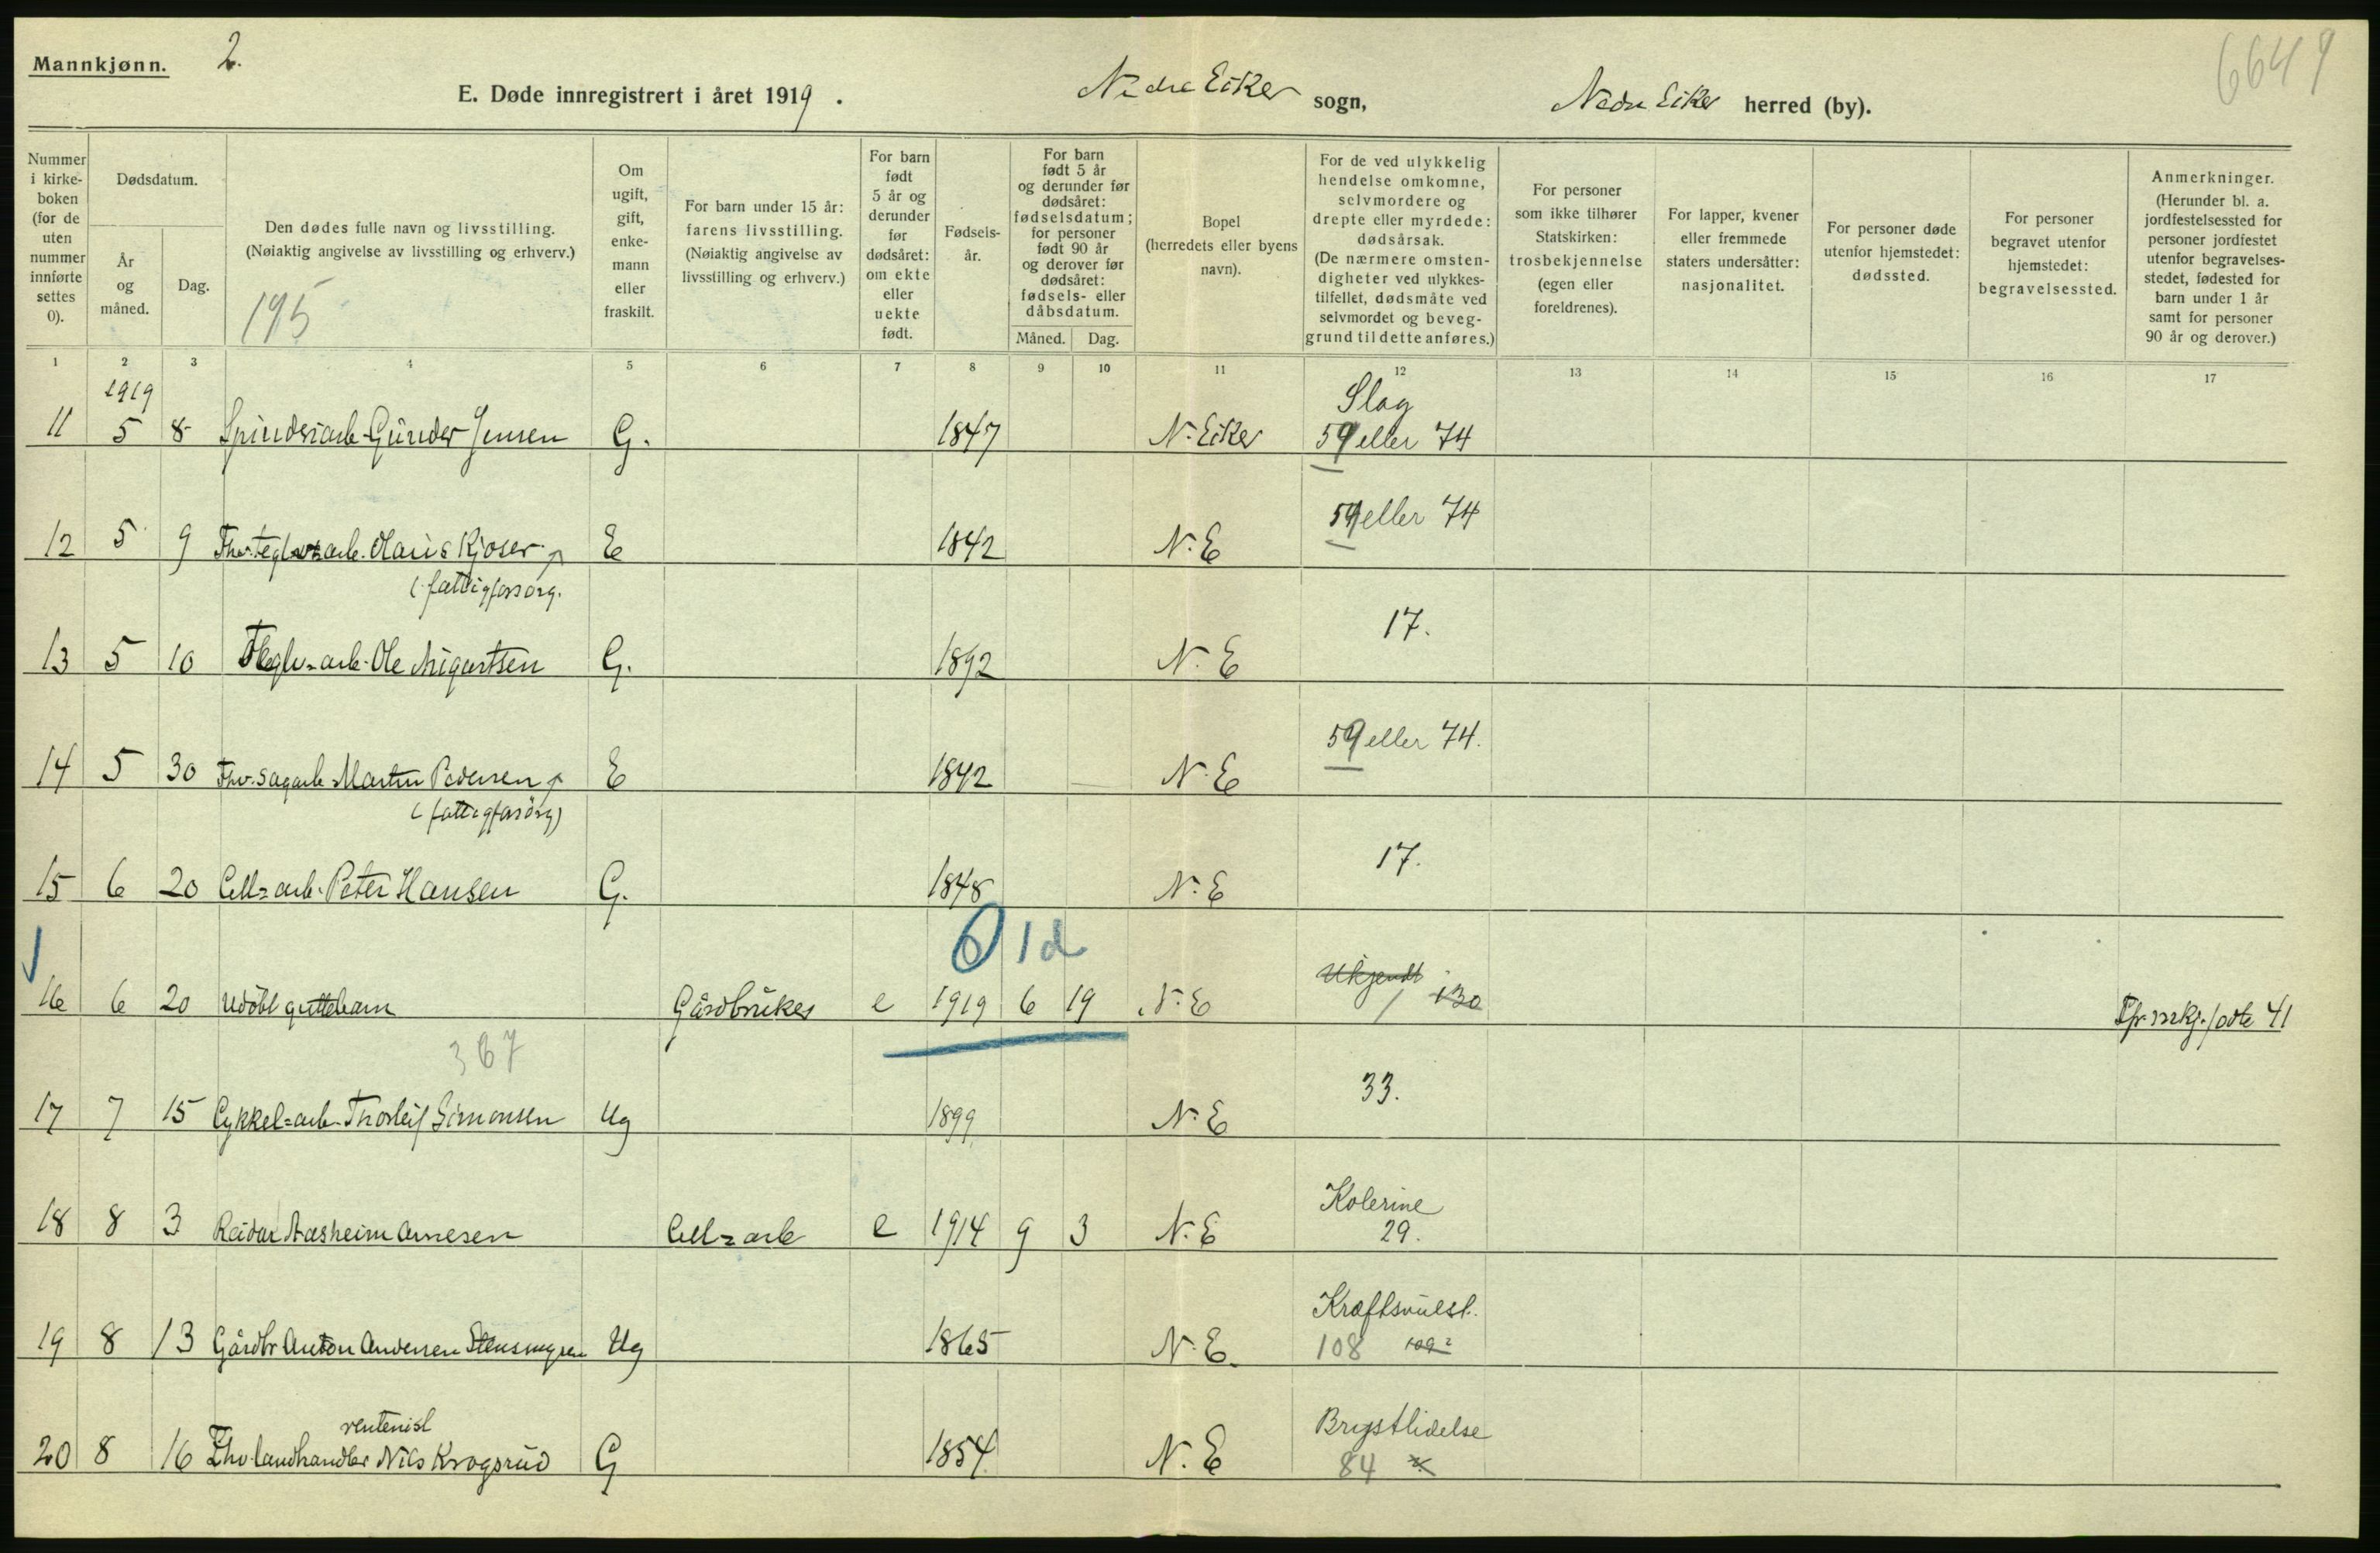 Mannkjønn. 2.
6649
E. Døde innregistrert i året 1919. Nedre Eiker sogn, Nedre Eiker herred (by).
Nummer i kirke-boken (for de uten nummer innførte settes 0).
Dødsdatum.
År og måned.
Dag.
Den dødes fulle navn og livsstilling.
(Nøiaktig angivelse av livsstilling og erhverv.)
195
Om ugift, gift, enke-mann eller fraskilt.
For barn under 15 år: farens livsstilling. (Nøiaktig angivelse av livsstilling og erhverv.)
For barn født 5 år og derunder før dødsåret: om ekte eller uekte født.
Fødsels-år.
For barn født 5 år og derunder før dødsåret: fødselsdatum; for personer født 90 år og derover før dødsåret: fødsels- eller dåbsdatum.
Måned. Dag.
Bopel (herredets eller byens navn).
For de ved ulykkelig hendelse omkomne, selvmordere og drepte eller myrdede: dødsårsak. (De nærmere omsten-digheter ved ulykkes-tilfellet, dødsmåte ved selvmordet og beveg-grund til dette anføres.)
For personer som ikke tilhører Statskirken: trosbekjennelse (egen eller foreldrenes).
For lapper, kvener eller fremmede staters undersåtter: nasjonalitet.
For personer døde utenfor hjemstedet: dødssted.
For personer begravet utenfor hjemstedet: begravelsessted.
Anmerkninger. (Herunder bl. a. jordfestelsessted for personer jordfestet utenfor begravelses-stedet, fødested for barn under 1 år samt for personer 90 år og derover.)
1 2 3 4 5 6 7 8 9 10 11 12 13 14 15 16 17
1919 Slag
11 5 8 Spinderiarb. Gunder Jensen G. 1847 N. Eiker 59 eller 74
59 eller 74
12 5 9 Fhv. teglv. arb. Olaus Kjøser E 1842 N. E
(fattigforsørg.
17.
13 5 10 Teglv.=arb. Ole G. 1892 N. E
59 eller 74.
14 5 30 Fhv. sagarb Martin Pedersen E 1842 N. E
(fattigforsørg)
17.
15 6 20 Cell=arb. Peter Hansen G. 1848 N. E
0 1d
Ukjendt
16 6 20 Udøbt guttebarn Gårdbruker e 1919 6 19 N. E 130
Tfr. mkj. fødte 41
367
33.
17 7 15 Cykkel=arb. Thorleif Simonsen Ug 1899 N. E
Kolerine
18 8 3 Reidar Aasheim Arnesen Cell=arb e 1914 9 3 N. E 29.
Kræftsvulst.
19 8 13 Gårdbr Anton Andersen Ug 1865 N. E. 108 109?
rentenist Brystlidelse
20 8 16 Fhv. landhandler Nils Krogsrud G 1854 N. E 84